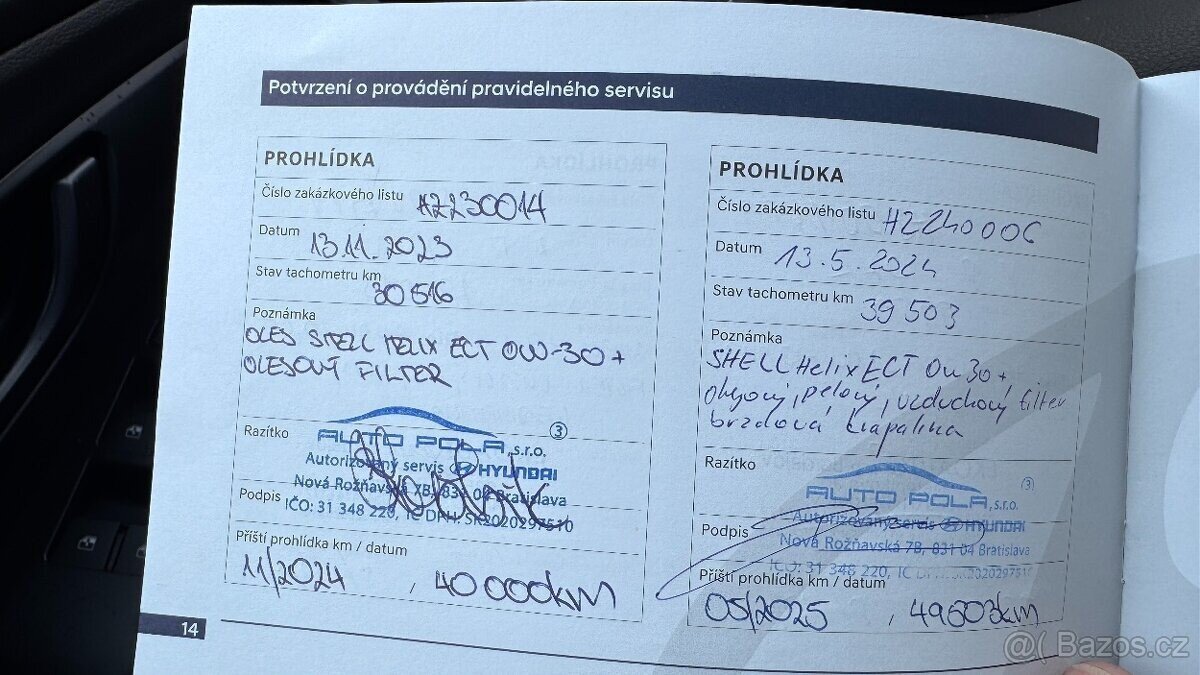 Potvrzení o provádění pravidelného servisu
PROHLÍDKA
Číslo zakázkového listu HZ230014
Datum 13.11.2023
Stav tachometru km 30516
Poznámka
OLEJ SHELL HELIX ECT 0W-30 +
OLEJOVÝ FILTER
Razítko
AUTO POLA, s.r.o. 3
Autorizovaný servis HYUNDAI
Nová Rožňavská 7B, 831 04 Bratislava
Podpis
IČO: 31 348 220, IČ DPH: SK2020297510
Příští prohlídka km / datum
11/2024 , 40 000km
14
PROHLÍDKA
Číslo zakázkového listu HZ240006
Datum 13.5.2024
Stav tachometru km 39503
Poznámka
SHELL Helix ECT 0w30 +
olejový, peľový, vzduchový filter
brzdová kvapalina
Razítko
AUTO POLA, s.r.o. (3)
Autorizovaný servis HYUNDAI
Podpis
Nová Rožňavská 7B, 831 04 Bratislava
IČO: 31 348 220, IČ DPH: SK2020297510
Příští prohlídka km / datum
05/2025 , 49503km
@( Bazos.cz